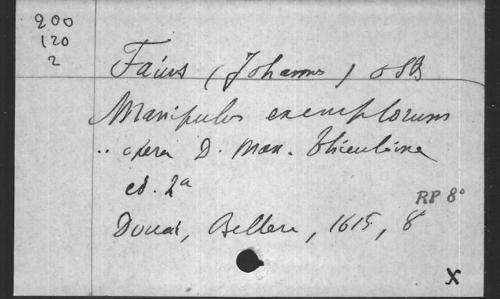 200
120
2
Faius (Johannes) OSB
Manipulus exemplorum
.. opera D. Max.
ed. 2a
RP 8°
Douai, Bellere, 1615, 8°
X